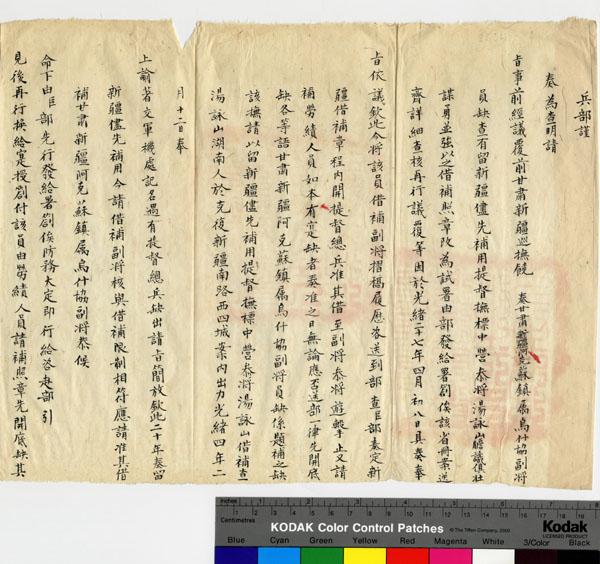 兵部謹
奏為查明請
旨事前經議覆前甘肅新疆巡撫饒 奏甘肅新疆阿克蘇鎮属烏什協副將
員缺查有留新疆儘先補用提督撫標中營參將湯詠山膽識俱壯
謀勇並強以之借補照章改為試署由部發給署劄俟該省冊案送
齊詳細查核再行議覆等因於光緒二十七年四月初八日具奏奉
旨依議欽此今將該員借補副將摺揭履歷咨送到部查臣部奏定新
疆借補章程内開提督總兵准其借至副將參將遊擊止又請
補勞績人員如本有寔缺者奏准之日無論應否送部一律先開底
缺各等語甘肅新疆阿克蘇鎮属烏什協副將員缺係題補之缺
該撫請以留新疆儘先補用提督撫標中營參將湯詠山借補查
湯詠山湖南人於克復新疆南路西四城案内出力光緒四年二
月十二日奉
上諭著交軍機處記名遇有提督總兵缺出請旨簡放欽此二十年奏留
新疆儘先補用今請借補副將核與借補限制相符應請准其借
補甘肅新疆阿克蘇鎮属烏什協副將恭候
命下由臣部先行發給署劄俟防務大定即行給咨赴部引
見後再行換給寔授劄付該員由勞績人員請補照章先開底缺其
inches
Centimetres
KODAK Color Control Patches
© The Tiffen Company, 2000
Kodak
LICENSED PRODUCT
Blue Cyan Green Yellow Red Magenta White 3/Color Black